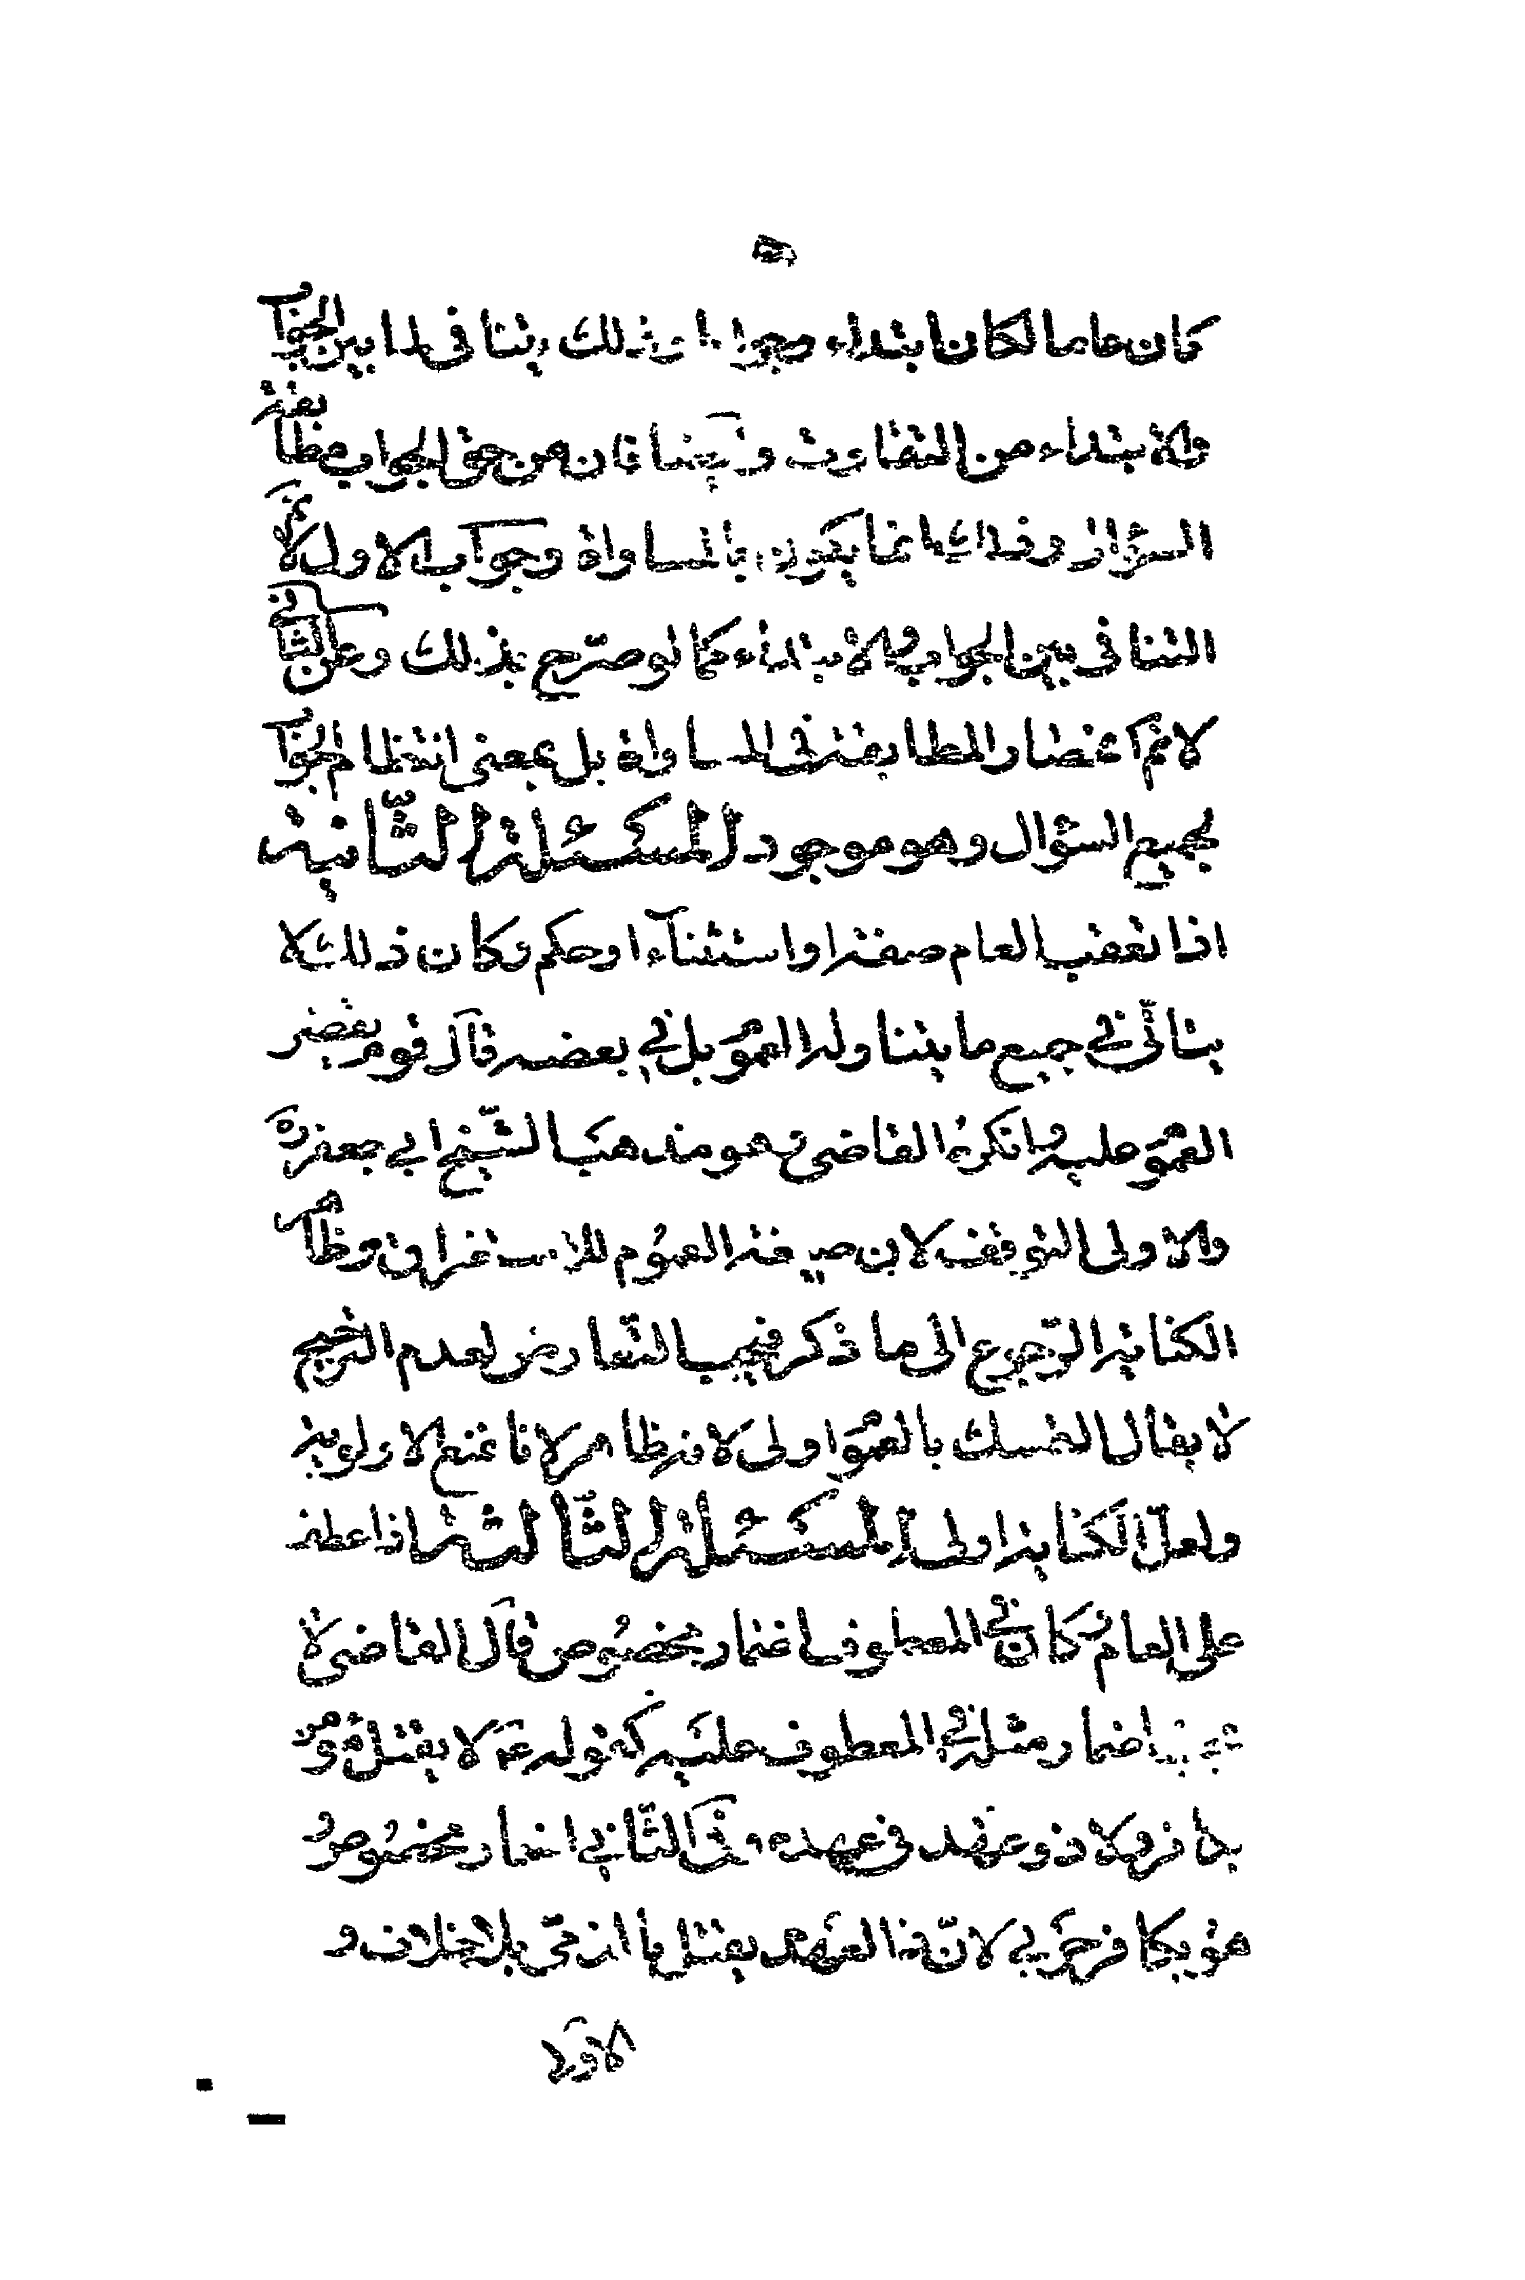 كان عاما لكان ابتداء وجوابا وذلك يتنافى لما بين الجوا
والابتداء من التفاوت وايضا فان من حق الجواب مطابقة
السؤال وذلك انما يكون بالمساواة وجواب الاول لانم
التنافى بين الجواب والابتداء كما لو صرّح بذلك وعن الثانى
لانم انحصار المطابقة فى المساواة بل بمعنى انتظام الجوا
لجميع السؤال وهو موجود المسئلة الثّانية
اذا تعقب العام صفة او استثناء او حكم وكان ذلك لا
يتأتّى في جميع ما يتناوله العمو بل في بعضه قال قوم يقصر
العمو عليه وانكره القاضى وهو مذهب الشّيخ ابي جعفر ره
والاولى التوقف لان صيغة العموم للاستغراق وظا
الكناية الرّجوع الى ما ذكر فيجب التّعارض لعدم الترجيح
لا يقال التمسك بالعمو اولى لانه ظاهر لانا نمنع الاولوية
ولعلّ الكناية اولى المسئلة الثّالثة اذا عطف
على العام كان في المعطوف اضمار مخصوص قال القاضى لا
يجب اضمار مثله في المعطوف عليه كقوله ع لا يقتل مؤمن
بكافر ولا ذو عهد فى عهده الثّاني اضمار مخصوص
هو بكافر حربي لانّ ذا العهد يقتل بالذمّى بلا خلاف و
الاول